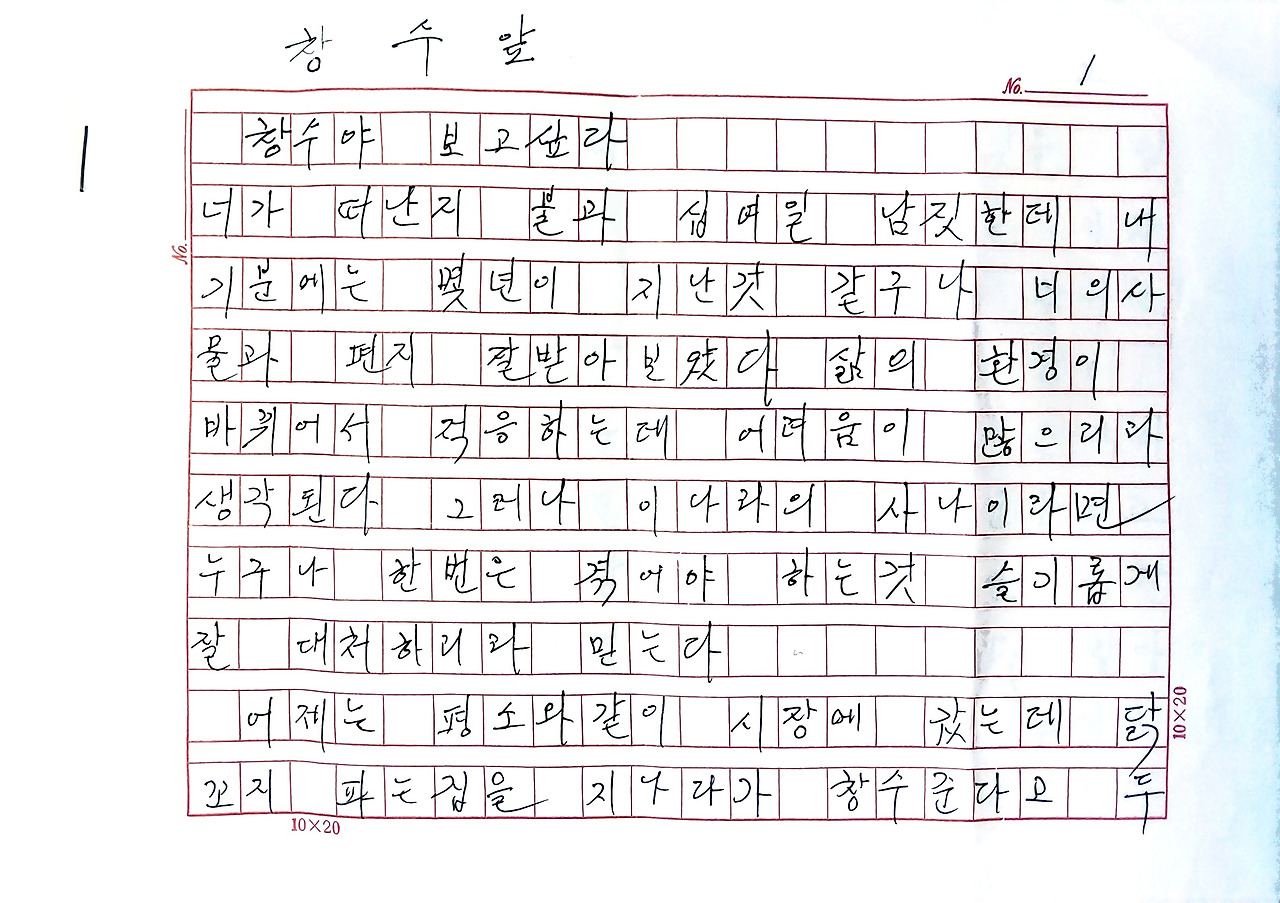 창수앞
No. 1
창수야 보고싶다
너가 떠난지 불과 십여일 남짓한데 내
No.
기분에는 몇년이 지난것 같구나 너의사
물과 편지 잘받아보았다 삶의 환경이
바뀌어서 적응하는데 어려움이 많으리라
생각된다 그러나 이나라의 사나이라면
누구나 한번은 겪어야 하는것 슬기롭게
잘 대처하리라 믿는다
어제는 평소와같이 시장에 갔는데 닭
꼬지 파는집을 지나다가 창수준다고 두
10×20
10×20